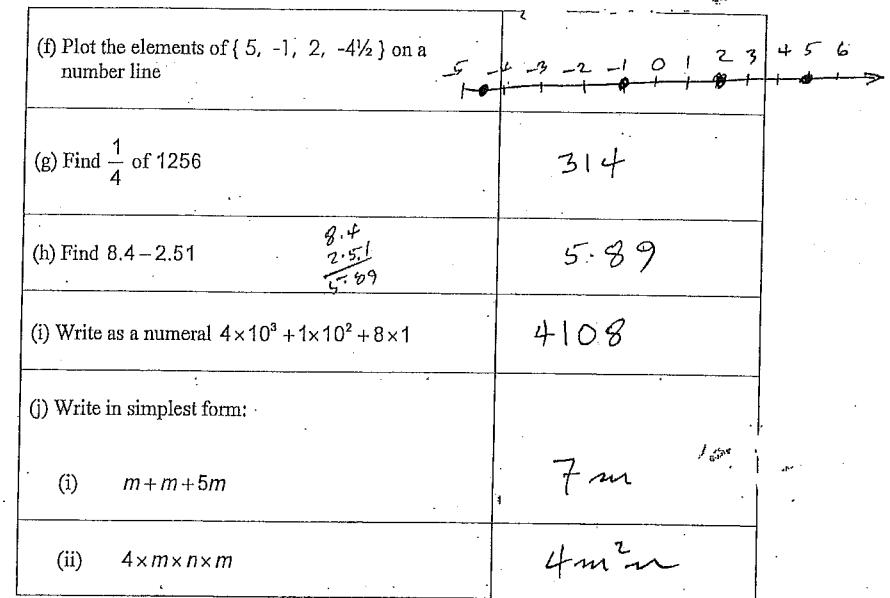 (f) Plot the elements of { 5, -1, 2, -4½ } on a
number line
-5 -4 -3 -2 -1 0 1 2 3 4 5 6
(g) Find 1/4 of 1256
314
(h) Find 8.4 – 2.51
8.4
2.51
5.89
5.89
(i) Write as a numeral 4×10³ +1×10² +8×1
4108
(j) Write in simplest form:
(i) m+m+5m
7m
(ii) 4×m×n×m
4m²n